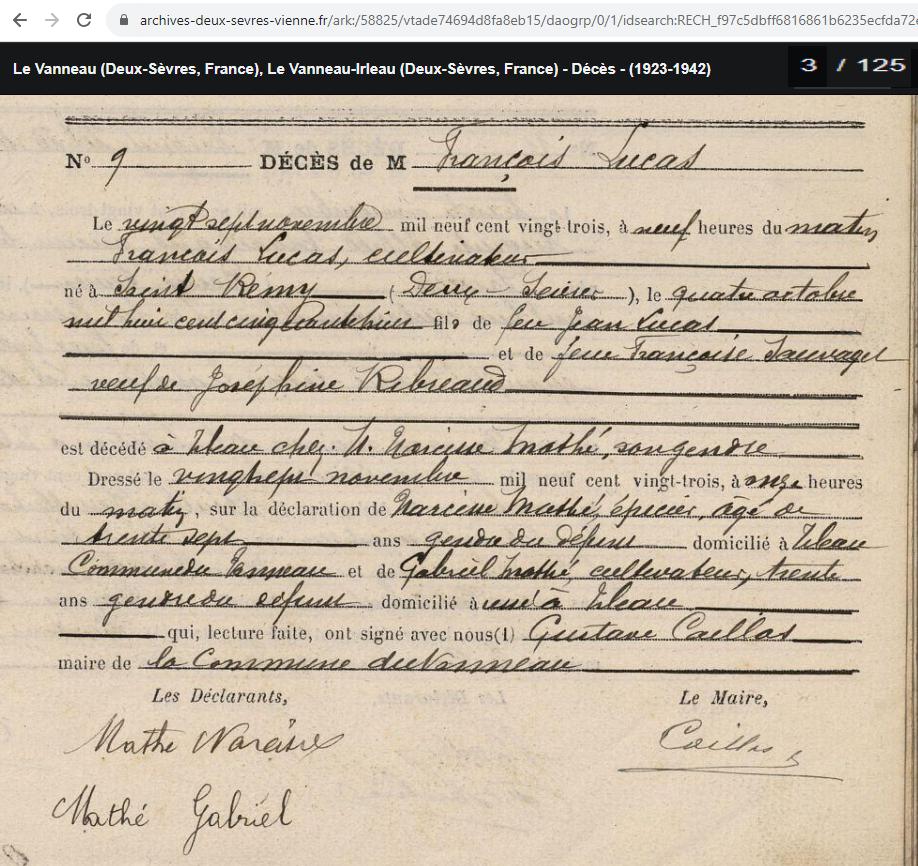 archives-deux-sevres-vienne.fr/ark:/58825/vtade74694d8fa8eb15/daogrp/0/1/idsearch:RECH_f97c5dbff6816861b6235ecfda72
Le Vanneau (Deux-Sèvres, France), Le Vanneau-Irleau (Deux-Sèvres, France) - Décès - (1923-1942) 3 / 125
N° 9 DÉCÈS de M François Lucas
Le vingt sept novembre mil neuf cent vingt-trois, à neuf heures du matin
François Lucas, cultivateur
né à Saint Rémy (Deux-Sèvres), le quatre octobre
mil huit cent cinquante huit fils de feu Jean Lucas
et de feue Françoise Sauvaget
veuf de Joséphine
est décédé à Irleau chez M. Narcisse Mathé, son gendre
Dressé le vingt sept novembre mil neuf cent vingt-trois, à onze heures
du matin, sur la déclaration de Narcisse Mathé, épicier, âgé de
trente sept ans gendre du défunt domicilié à Irleau
Commune du Vanneau et de Gabriel Mathé, cultivateur, trente
ans gendre du défunt domicilié à Irleau
qui, lecture faite, ont signé avec nous(1) Gustave Caillas
maire de la Commune du Vanneau
Les Déclarants, Le Maire,
Mathé Narcisse Caillas
Mathé Gabriel